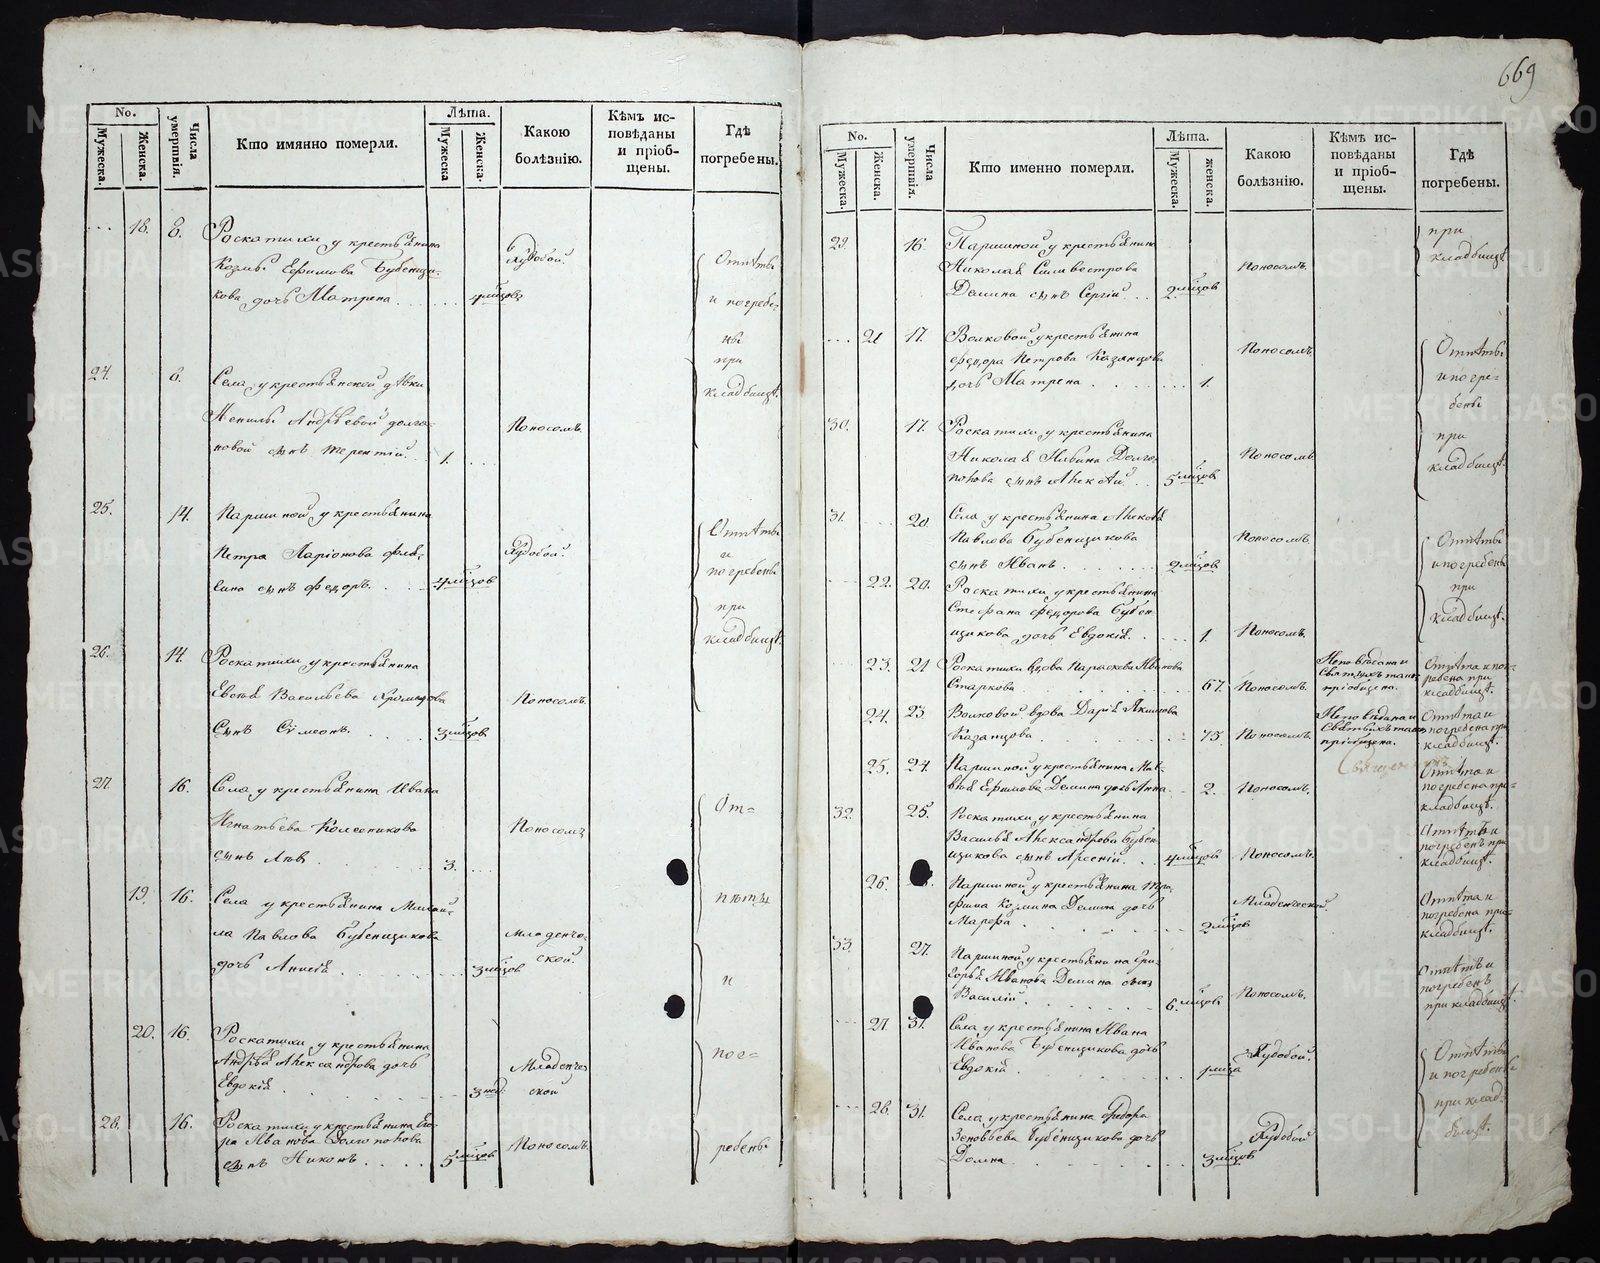 669
No.
Мужеска.
Женска.
Числа умертвія.
Кто имянно померли.
Лѣта.
Мужеска
Женска.
Какою болѣзнію.
Кѣмъ исповѣданы и пріобщены.
Гдѣ погребены.
... 18. 8. Роскатихи у крестьянина
Козмы Ефимова Бубенщи-
кова дочь Матрена . . . . 4 мѣсцовъ
Худобой.
Отпѣты
и погребе-
ны
при
кладбищѣ.
24. 8. Села у крестьянской дѣвки
Ненилы Андрѣевой Долго-
повой сынъ Терентій. 1. ...
Поносомъ.
25. 14. Паршиной у крестьянина
Петра Ларіонова
сынъ Федоръ. . . . 4 мѣсцовъ
Худобой.
Отпѣты
и
погребены
при
кладбищѣ.
26. 14. Роскатихи у крестьянина
Евсѣя Васильева
Сынъ Сѵмеонъ. . . . 3 мѣсцовъ
Поносомъ.
27. 16. Села у крестьянина Ивана
Игнатьева Колесникова
сынъ Левъ . . . 3. ...
Поносомъ
От=
19. 16. Села у крестьянина Михай-
ла Павлова Бубенщикова
дочь Анисія . . . . 3 мѣсцовъ
Младенче-
ской.
пѣты
и
20. 16. Роскатихи у крестьянина
Андрѣя Александрова дочь
Евдокія . . . . 3 нед.
Младенче
ской
пог=
28. 16. Роскатихи у крестьянина Его-
ра Иванова Долгополова
сынъ Никонъ . . . . 5 мѣсцовъ
Поносомъ.
ребены
No.
Мужеска.
Женска.
Числа умертвія.
Кто именно померли.
Лѣта.
Мужеска.
женска.
Какою болѣзнію.
Кѣмъ исповѣданы и пріобщены.
Гдѣ погребены.
29. 16. Паршиной у крестьянина
Николая Сильвестрова
Демина сынъ Сергій. . . 2 мѣсцовъ
Поносомъ.
при
кладбищѣ
... 21 17. Волковой у крестьянина
Федора Петрова Казанцова
дочь Матрена . . . . 1.
Поносомъ
Отпѣты
и погре-
бены
при
кладбищѣ.
30. 17. Роскатихи у крестьянина
Николая Долго-
полова сынъ Алексѣй. . . 5 мѣсцовъ
Поносомъ
31. 20. Села у крестьянина Якова
Павлова Бубенщикова
сынъ Иванъ . . . . 2 мѣсцовъ
Поносомъ
Отпѣты
и погребены
при
кладбищѣ.
22. 20. Роскатихи у крестьянина
Стефана Федорова Бубен
щикова дочь Евдокія . . . . 1.
Поносомъ.
23. 21 Роскатихи вдова Параскева Иванова
Старкова . . . . 67.
Поносомъ.
Исповѣдана и
Святыхъ таинъ
пріобщена.
Отпѣта и пог-
ребена при
кладбищѣ.
24. 23 Волковой вдова Дарія Якимова
Казанцова . . . . 75.
Поносомъ
Исповѣдана и
Святыхъ таинъ
пріобщена.
Священникъ
Отпѣта и
погребена при
кладбищѣ.
25. 24. Паршиной у крестьянина Мат-
вѣя Ефимова Демина дочь Анна . . 2.
Поносомъ.
Отпѣта и
погребена при=
кладбищѣ.
32. 25. Роскатихи у крестьянина
Василья Александрова Бубен
щикова сынъ Арсеній. . . 4 мѣсцовъ
Поносомъ.
Отпѣтъ и
погребенъ при
кладбищѣ.
26. Паршиной у крестьянина Тро-
фима Козмина Демина дочь
Марфа . . . . 2 мѣсцов
Младенческой.
Отпѣта и
погребена при=
кладбищѣ.
33. 27. Паршиной у крестьянина Гри-
горья Иванова Демина сынъ
Василій . . . . 6. мѣсцовъ
Поносомъ.
Отпѣтъ и
погребенъ
при кладбищѣ.
... 27. 31. Села у крестьянина Ивана
Иванова Бубенщикова дочь
Евдокія . . . .
Худобой.
Отпѣты
и погребены
при клад-
бищѣ.
... 28. 31. Села у крестьянина Федора
Зеновьева Бубенщикова дочь
Домна . . . . 3 мѣсцов
Худобой
METRIKI.GASO-URAL.RU